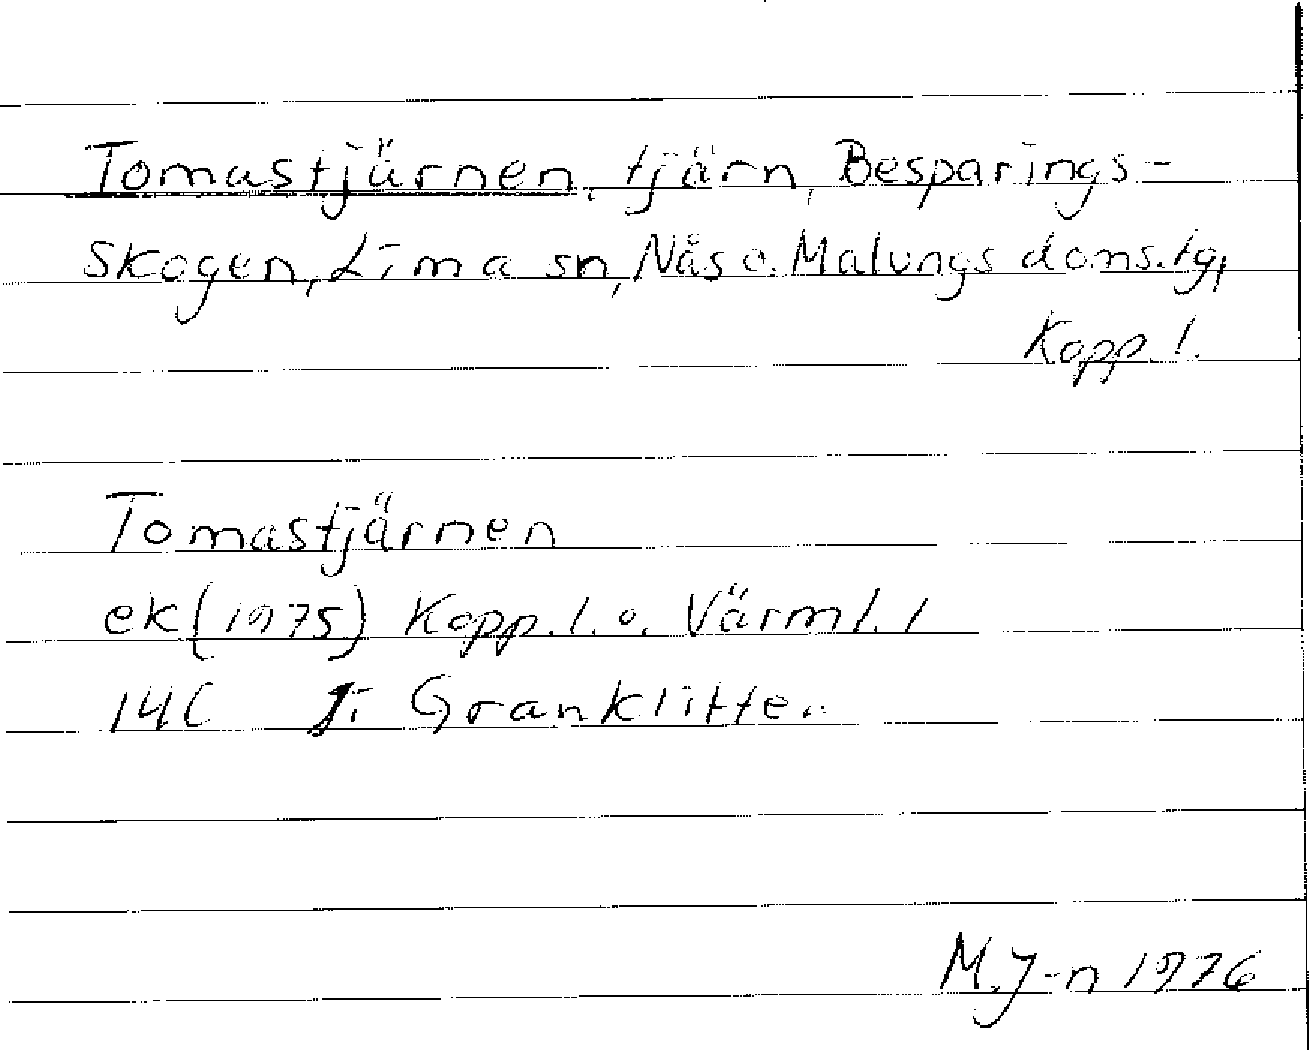 Tomastjärnen, tjärn, Besparings-
skogen, Lima sn, Nås o. Malungs doms.lg,
Kopp. l.
Tomastjärnen
ek (1975) Kopp. l. o. Värml. l
14C Granklitten
M.J-n 1976